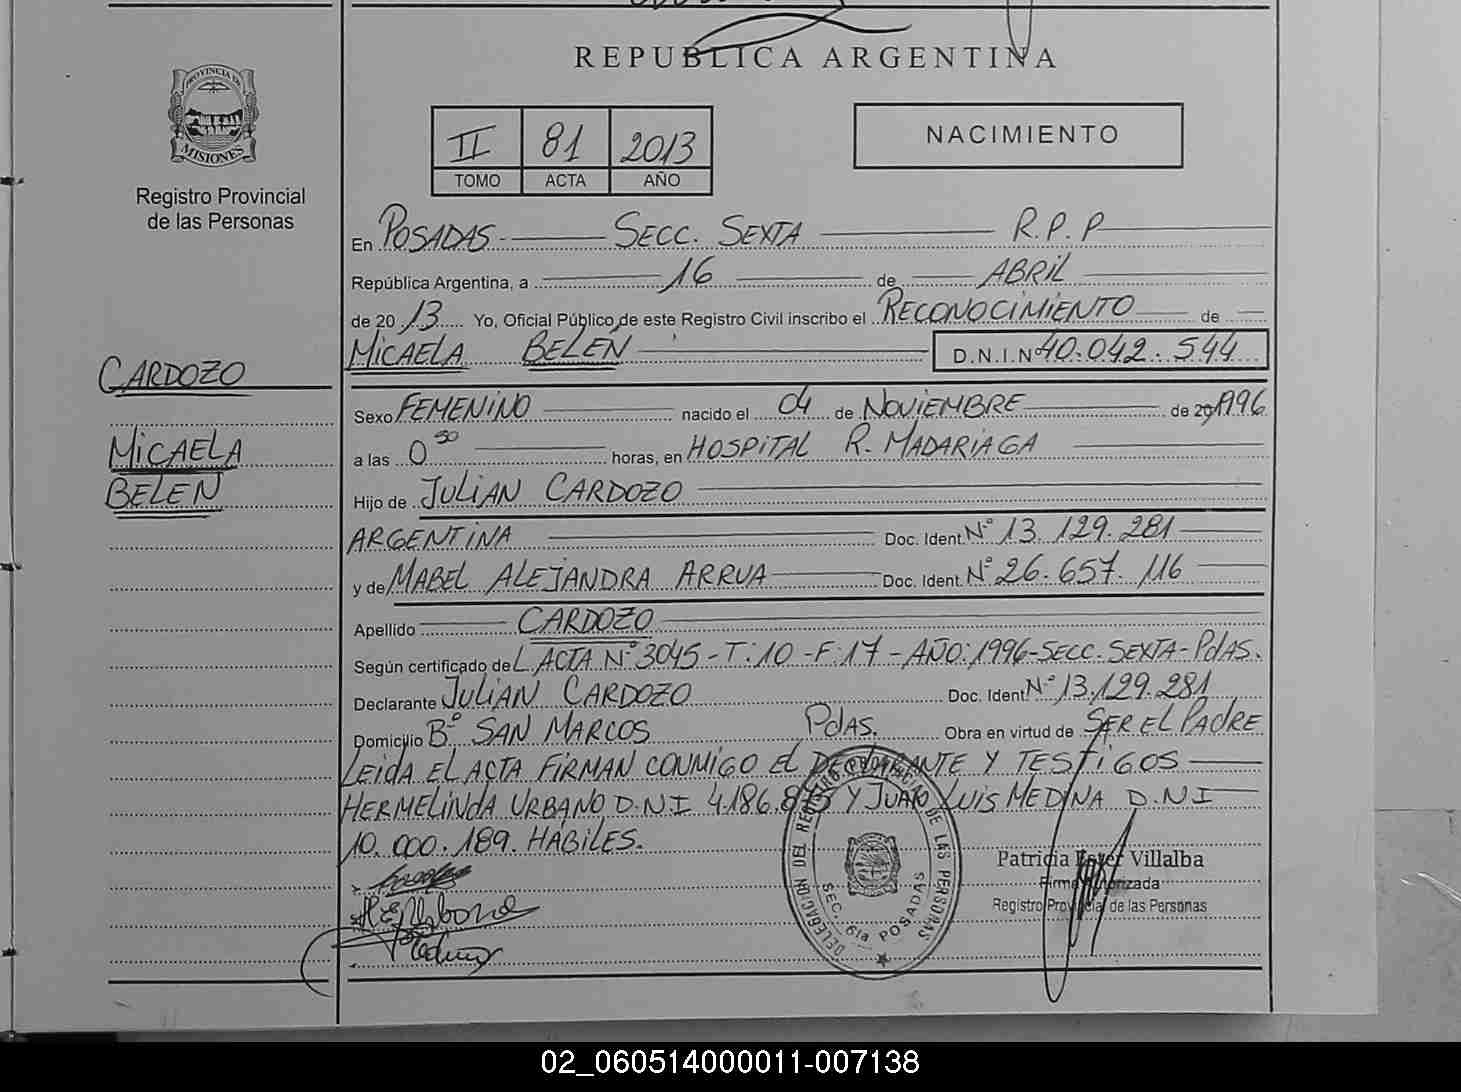 REPUBLICA ARGENTINA
PROVINCIA DE
MISIONES
Registro Provincial
de las Personas
II 81 2013
TOMO ACTA AÑO
NACIMIENTO
En POSADAS SECC. SEXTA R.P.P
República Argentina, a 16 de ABRIL
de 20 13 Yo, Oficial Público de este Registro Civil inscribo el RECONOCIMIENTO de
MICAELA BELÉN D.N.I.Nº 40.042.544
CARDOZO
MICAELA
BELEN
Sexo FEMENINO nacido el 04 de NOVIEMBRE de 20 1996
a las 0 30 horas, en HOSPITAL R. MADARIAGA
Hijo de JULIAN CARDOZO
ARGENTINA Doc. Ident. Nº 13.129.281
y de MABEL ALEJANDRA ARRUA Doc. Ident. Nº 26.657.116
Apellido CARDOZO
Según certificado de L ACTA Nº 3045-T:10-F:17-AÑO:1996-SECC.SEXTA-PdAS.
Declarante JULIAN CARDOZO Doc. Ident. Nº 13.129.281
Domicilio Bº SAN MARCOS PdAS. Obra en virtud de SER EL PADRE
LEIDA EL ACTA FIRMAN CONMIGO EL DECLARANTE Y TESTIGOS
HERMELINDA URBANO D.N.I 4.186.8 Y JUAN LUIS MEDINA D.N.I
10.000.189. HÁBILES.
DELEGACION DEL REGISTRO PROVINCIAL DE LAS PERSONAS
SEC. 6ta POSADAS
Patricia Ester Villalba
Firma Autorizada
Registro Provincial de las Personas
02_060514000011-007138